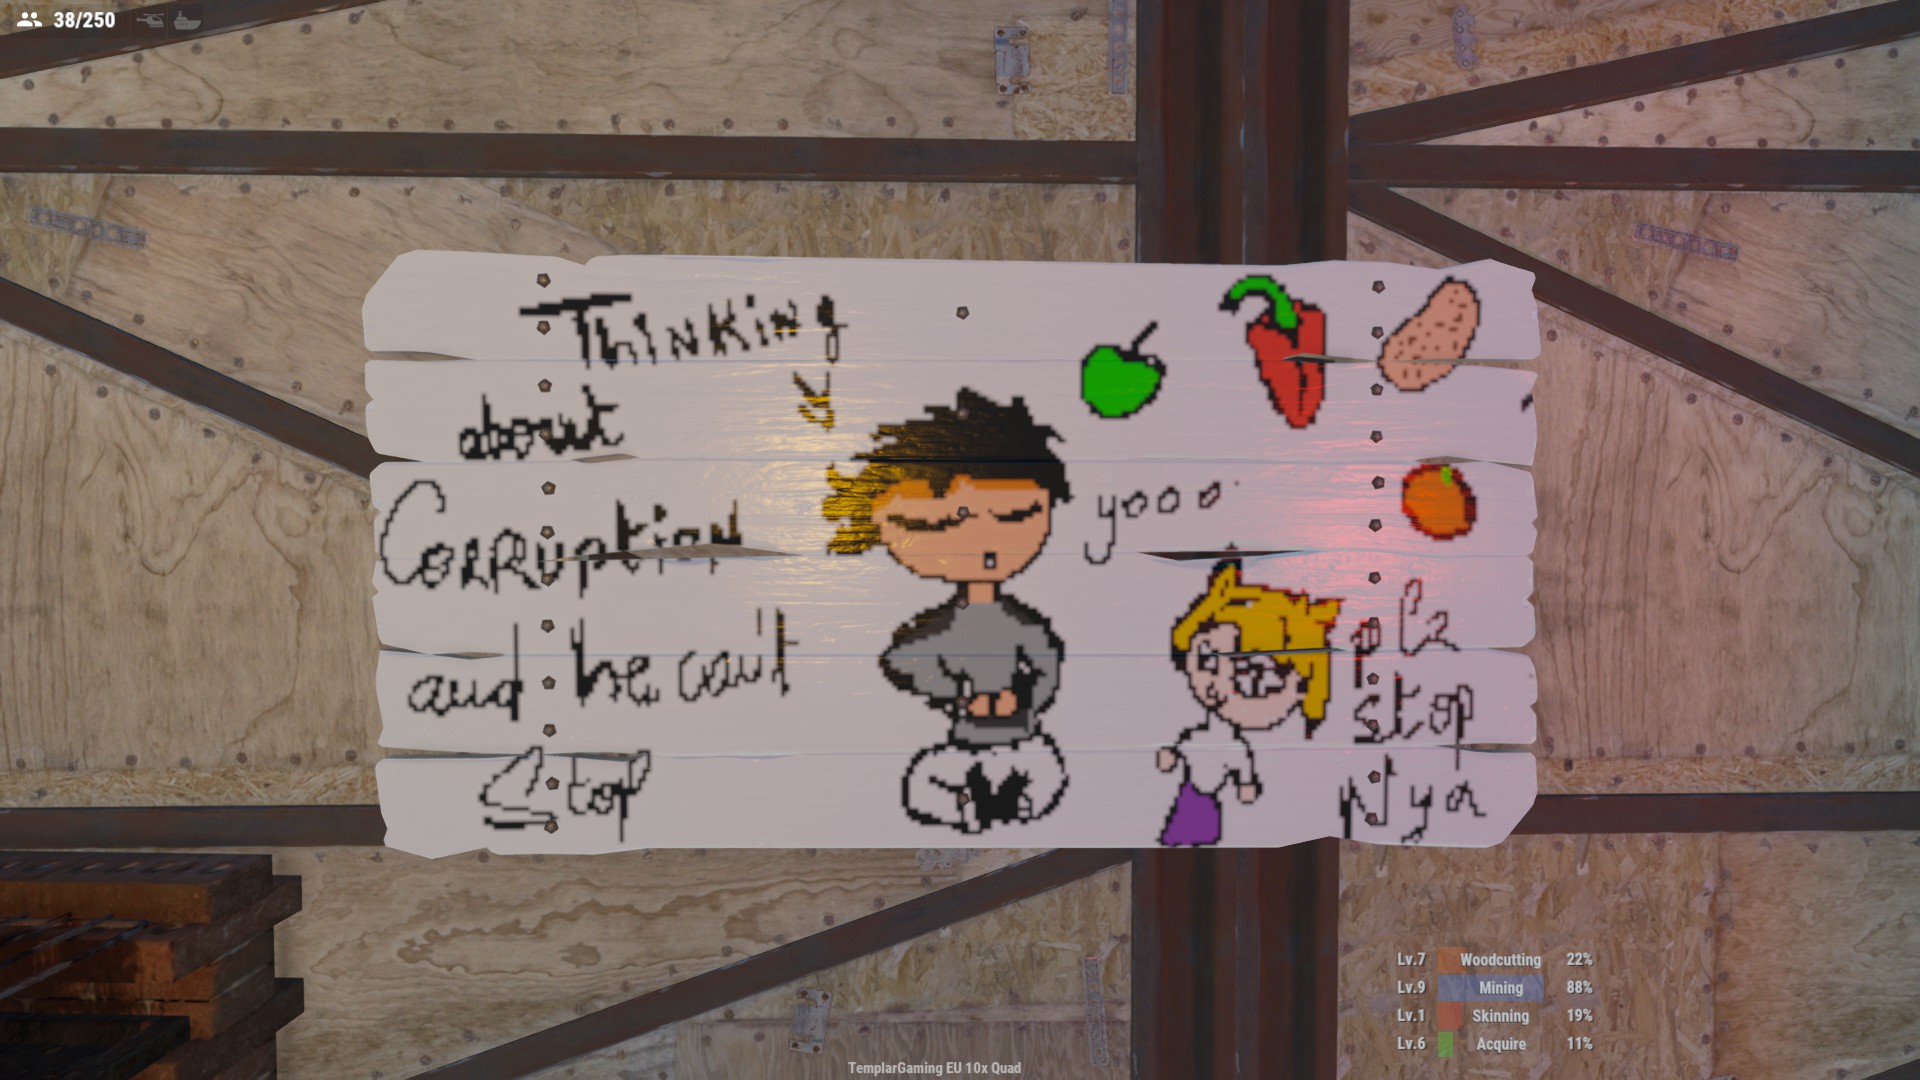 38/250
Thinking
about
Corruption
and he can't
Stop
yooo
plz
stop
Nya
Lv.7 Woodcutting 22%
Lv.9 Mining 88%
Lv.1 Skinning 19%
Lv.6 Acquire 11%
TemplarGaming EU 10x Quad